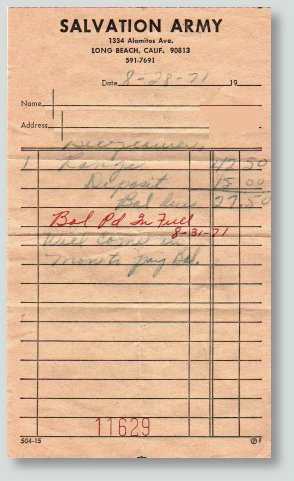 SALVATION ARMY
1334 Alamitos Ave.
LONG BEACH, CALIF. 90813
591-7691
Date 8-28-71 19
Name
Address
1 Range 42.50
Deposit 15.00
Bal due 27.50
Bal Pd In Full
8-31-71
Will come in
Mon to pay Bal.
11629
504-15